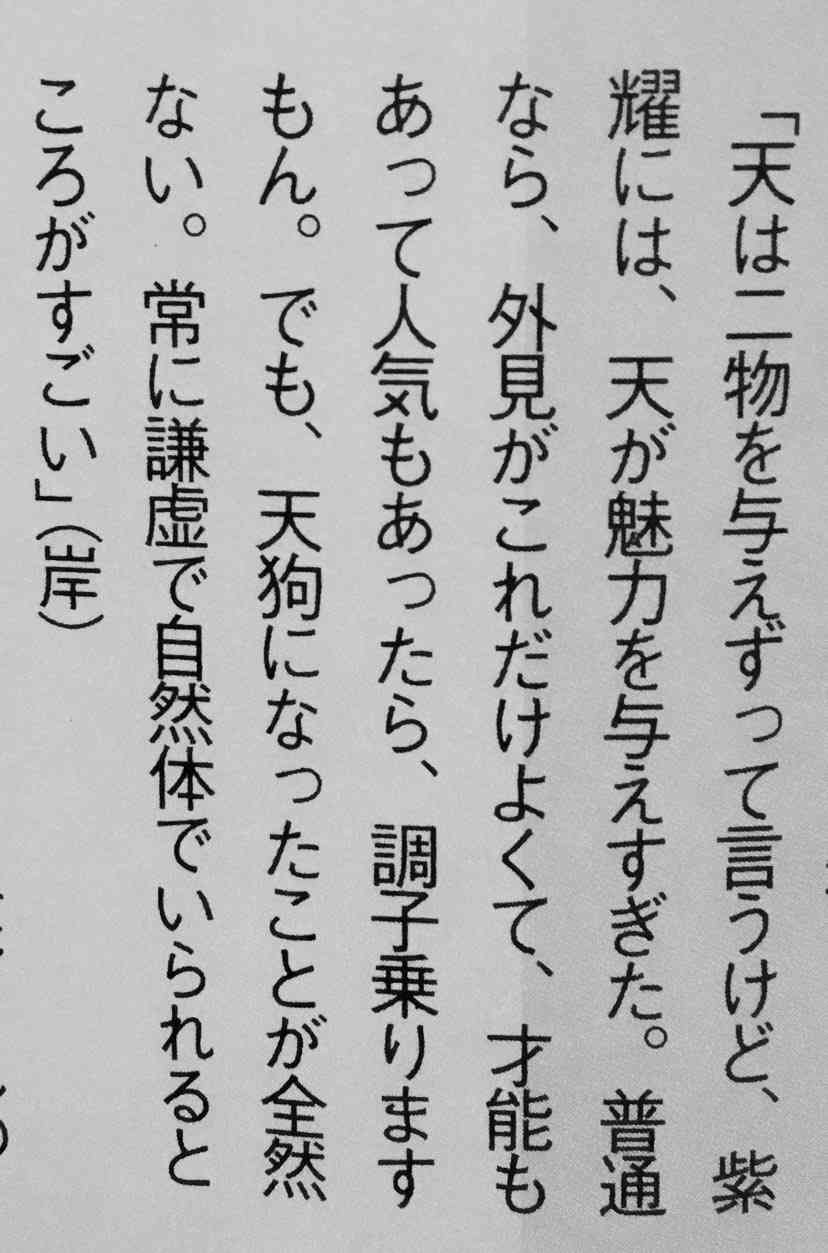 「天は二物を与えずって言うけど、紫
耀には、天が魅力を与えすぎた。普通
なら、外見がこれだけよくて、才能も
あって人気もあったら、調子乗ります
もん。でも、天狗になったことが全然
ない。常に謙虚で自然体でいられると
ころがすごい」（岸）